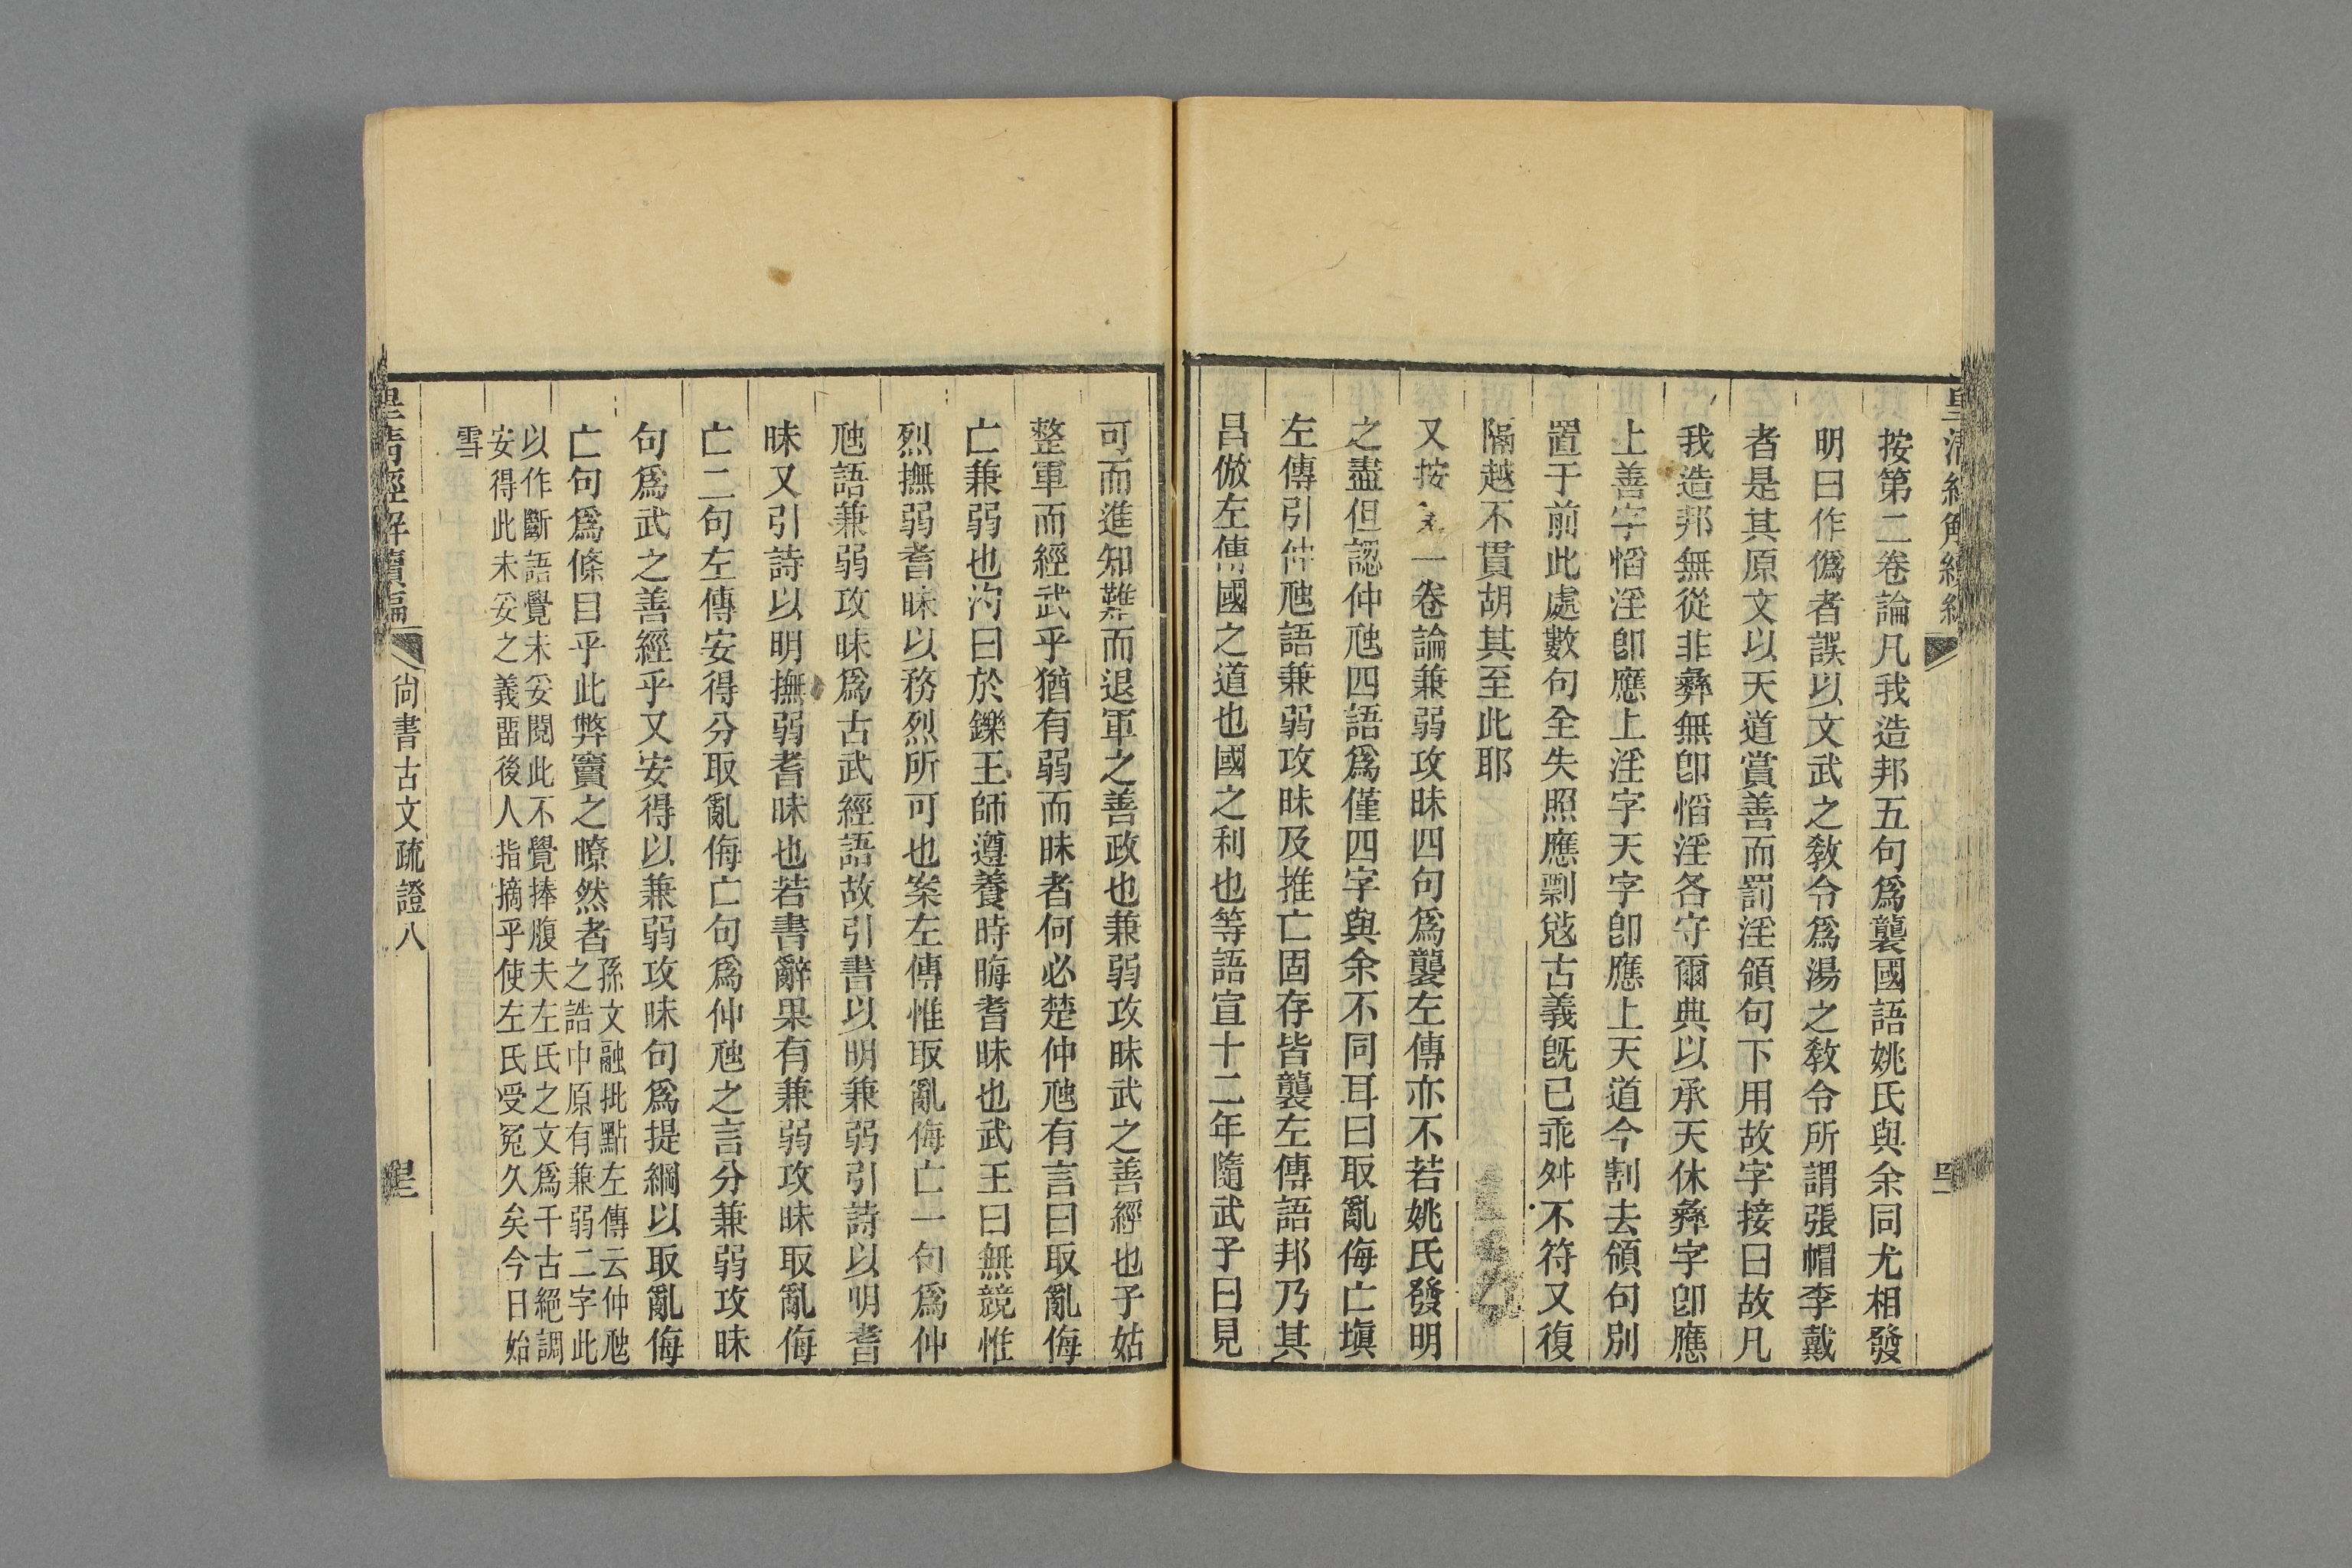 按第二卷論凡我造邦五句爲襲國語姚氏與余同尤相發
明曰作僞者誤以文武之敎令爲湯之敎令所謂張帽李戴
者是其原文以天道賞善而罰淫領句下用故字接曰故凡
我造邦無從非彝無卽慆淫各守爾典以承天休彝字卽應
上善字慆淫卽應上淫字天字卽應上天道今割去領句別
置于前此處數句全失照應剽尅古義旣已乖舛不符又復
隔越不貫胡其至此耶
又按一卷論兼弱攻昧四句爲襲左傳亦不若姚氏發明
之盡但認仲虺四語爲僅四字與余不同耳曰取亂侮亡塡
左傳引仲虺語兼弱攻昧及推亡固存皆襲左傳語邦乃其
昌倣左傳國之道也國之利也等語宣十二年隨武子曰見
可而進知難而退軍之善政也兼弱攻昧武之善經也子姑
整軍而經武乎猶有弱而昧者何必楚仲虺有言曰取亂侮
亡兼弱也汋曰於鑠王師遵養時晦耆昧也武王曰無競惟
烈撫弱耆昧以務烈所可也案左傳惟取亂侮亡一句爲仲
虺語兼弱攻昧爲古武經語故引書以明兼弱引詩以明耆
昧又引詩以明撫弱耆昧也若書辭果有兼弱攻昧取亂侮
亡二句左傳安得分取亂侮亡句爲仲虺之言分兼弱攻昧
句爲武之善經乎又安得以兼弱攻昧句爲提綱以取亂侮
亡句爲條目乎此弊竇之瞭然者
孫文融批點左傳云仲虺
之誥中原有兼弱二字此
以作斷語覺未妥閱此不覺捧腹夫左氏之文爲千古絕調
安得此未妥之義畱後人指摘乎使左氏受冤久矣今日始
雪
皇清經解續編
尙書古文疏證八